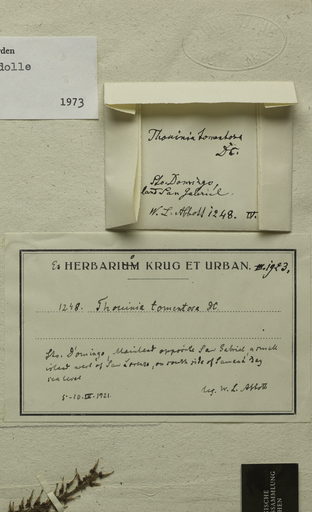 rden
dolle
1973
Thouinia tomentosa
DC.
Sto. Domingo,
land San Gabriel.
W. L. Abbott 1248. IV.
Ex HERBARIUM KRUG ET URBAN. III. 1923.
1248. Thouinia tomentosa DC
Sto. Domingo, Mainland opposite San Gabriel a small
island west of San Lorenzo, on south side of Samaná Bay
sea level
5-10. III. 1921. leg. W. L. Abbott
ISCHE
SAMMLUNG
IEN